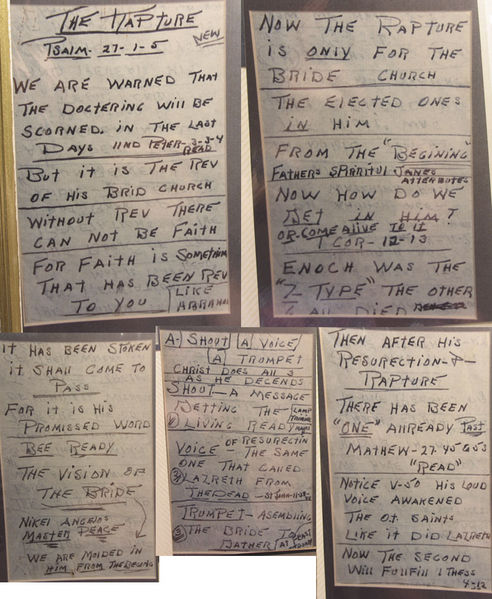 THE RAPTURE
PSAlM. 27-1-5
NEW
WE ARE WARNED THAT
THE DOCTERING Will BE
SCORNED. iN THE LAST
DAYS IIND PETER-3-3-4
READ
BUT iT iS THE REV
OF HiS BRiD CHURCH
WiTHOUT REV THERE
CAN NOT BE FAiTH
FOR FAiTH iS SOMETHiN
THAT HAS BEEN REV
TO YOU LiKE
ABRAHA
NOW THE RAPTURE
iS ONlY FOR THE
BRiDE CHURCH
THE ElECTED ONES
iN HiM
FROM THE "BEGiNiNG"
FATHERS SPiRiTUl
NOW HOW DO WE
GET iN HiM?
OR-COME AliVE TO iT
I COR-12-13
ENOCH WAS THE
"7-TYPE" THE OTHER
6 All DiED
iT HAS BEEN SPOKEN
iT SHAll COME TO
PASS
FOR iT iS HiS
PROMiSED WORD
BEE READY
THE ViSiON OF
THE BRiDE
NiKEl ANGElOS
MASTER PEACE
WE ARE MOlDED iN
HiM FROM THE BEGiNG
A- SHOUT A VOiCE
A TRUMPET
CHRiST DOES All 3
AS HE DECENDS
SHOUT-A MESSAGE
GETTiNG THE
1 LiViNG READY
OF RESURECTiN
VOiCE - THE SAME
ONE THAT CAllED
2 LAZRETH FROM
THE DEAD -ST JOHN-11-38-44
TRUMPET-ASEMBliNG
3 THE BRiDE TO
GATHER
THEN AFTER HiS
RESURECTiON-&-
RAPTURE
THERE HAS BEEN
"ONE" AlREADY PAST
MATHEW-27. 45 & 53
"READ"
NOTiCE V-50 HiS lOUD
VOiCE AWAKENED
THE O.T. SAiNTS
LiKE iT DiD LAZRETH
NOW THE SECOND
Will FUllFill I THESS